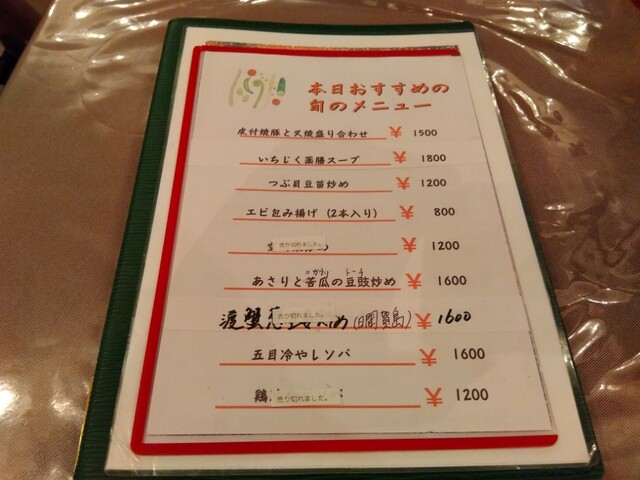 本日おすすめの
旬のメニュー
皮付焼豚と叉焼盛り合わせ ¥ 1500
いちじく薬膳スープ ¥ 1800
つぶ貝豆苗炒め ¥ 1200
エビ包み揚げ (2本入り) ¥ 800
売り切れました。 ¥ 1200
あさりと苦瓜の豆豉炒め ¥ 1600
渡蟹 売り切れました。 め (日間賀島) ¥ 1600
五目冷やしソバ ¥ 1600
鶏 売り切れました。 ¥ 1200